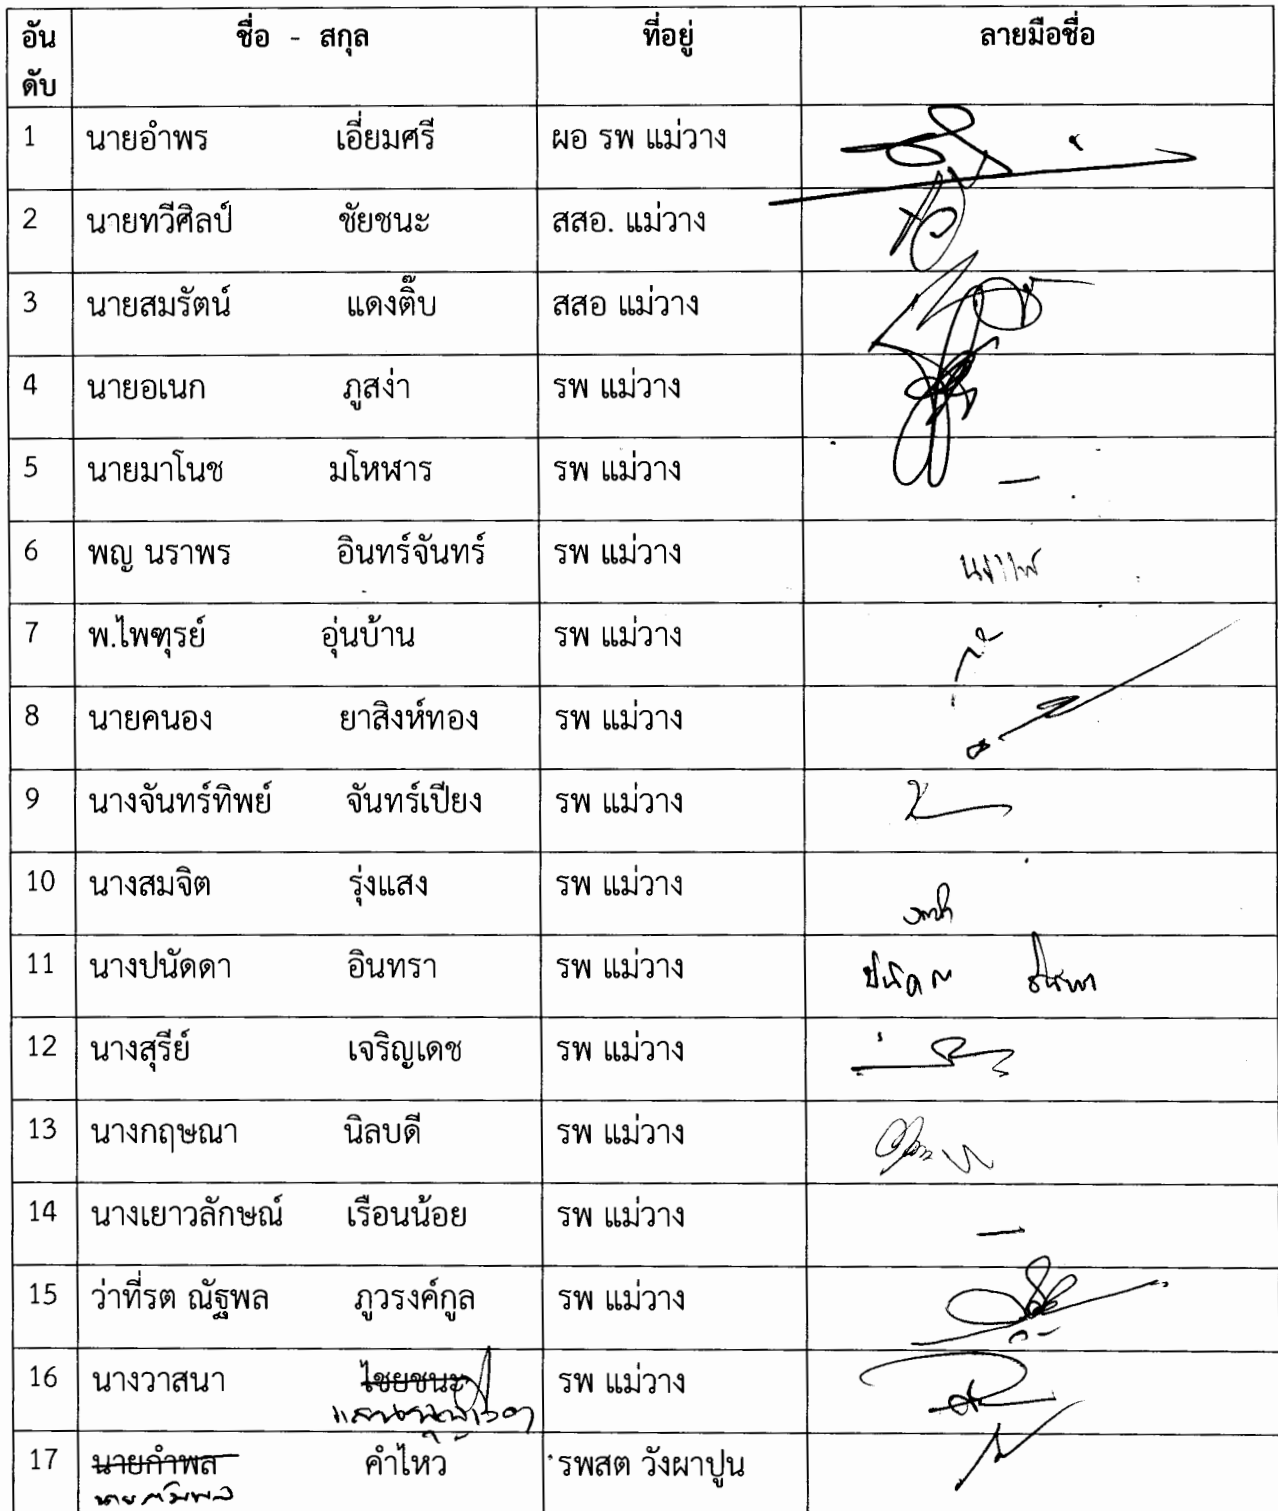 อัน ชื่อ - สกุล ที่อยู่ ลายมือชื่อ
ดับ
1 นายอำพร เอี่ยมศรี ผอ รพ แม่วาง
2 นายทวีศิลป์ ชัยชนะ สสอ. แม่วาง
3 นายสมรัตน์ แดงติ๊บ สสอ แม่วาง
4 นายอเนก ภูสง่า รพ แม่วาง
5 นายมาโนช มโหฬาร รพ แม่วาง –
6 พญ นราพร อินทร์จันทร์ รพ แม่วาง
7 พ.ไพฑุรย์ อุ่นบ้าน รพ แม่วาง
8 นายคนอง ยาสิงห์ทอง รพ แม่วาง
9 นางจันทร์ทิพย์ จันทร์เปียง รพ แม่วาง
10 นางสมจิต รุ่งแสง รพ แม่วาง
11 นางปนัดดา อินทรา รพ แม่วาง
12 นางสุรีย์ เจริญเดช รพ แม่วาง
13 นางกฤษณา นิลบดี รพ แม่วาง
14 นางเยาวลักษณ์ เรือนน้อย รพ แม่วาง –
15 ว่าที่รต ณัฐพล ภูวรงค์กูล รพ แม่วาง
16 นางวาสนา ไชยชนะ รพ แม่วาง
17 นายกำพล คำไหว รพสต วังผาปูน